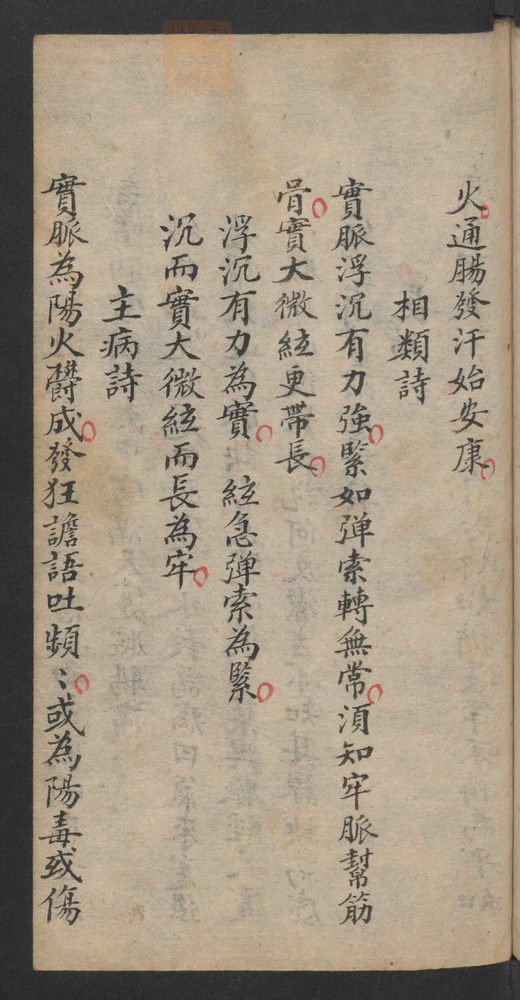 火通腸發汗始安康
相類詩
實脈浮沉有力強緊如弹索轉無常須知牢脈幫筋
骨實大微絃更帶長
浮沉有力為實 絃急弹索為緊
沉而實大微絃而長為牢
主病詩
實脈為陽火欝成發狂譫語吐頻〻或為陽毒或傷